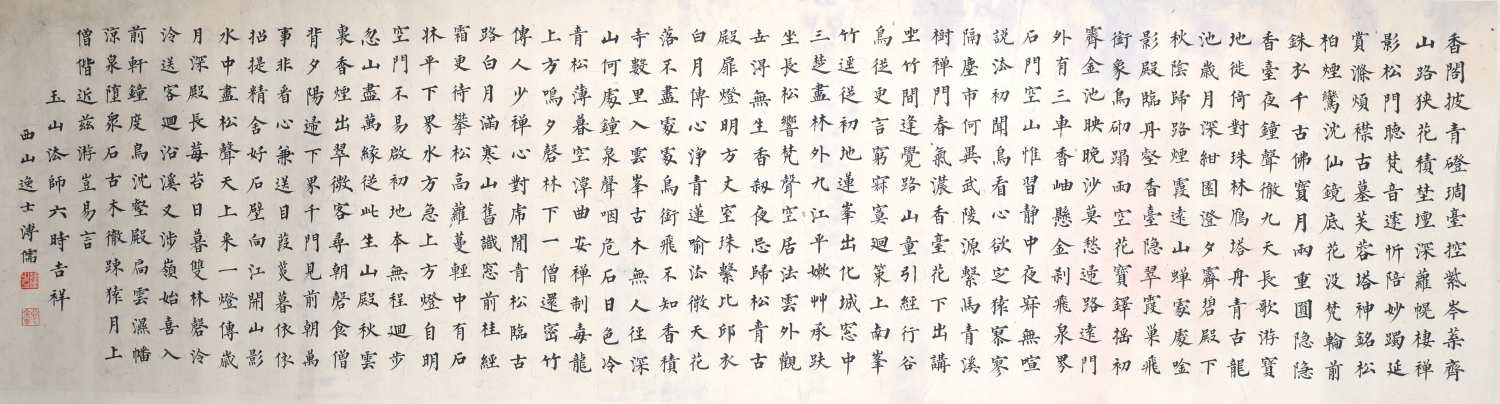 香閣披青磴琱臺控紫岑葉齊
山路狹花積埜壇深蘿幌棲禪
影松門聽梵音遽忻陪妙躅延
賞滌煩襟古墓芙蓉塔神銘松
柏煙鸞沈仙鏡底花沒梵輪前
銖衣千古佛寶月兩重圓隱隱
香臺夜鐘聲徹九天長歌游寶
地徙倚對珠林鴈塔丹青古龍
池歲月深紺園澄夕霽碧殿下
秋陰歸路煙霞遠山蟬處處唫
影殿臨丹壑香臺隱翠霞巢飛
銜象鳥砌蹋雨空花寶鐸搖初
霽金池映晚沙莫愁還路遠門
外有三車香岫懸金刹飛泉界
石門空山惟習靜中夜寂無喧
說法初聞鳥看心欲定猿寥寥
隔塵市何異武陵源繫馬青溪
樹禪門春氣濃香臺花下出講
坐竹間逢覺路山童引經行谷
鳥從更言窮寂寞迴策上南峯
竹逕從初地蓮峯出化城窓中
三楚盡林外九江平嫩艸承趺
坐長松響梵聲空居法雲外觀
世得無生香剎夜忘歸松青古
殿扉燈明方丈室珠繫比邱衣
白月傳心淨青蓮喻法微天花
落不盡處處鳥銜飛不知香積
寺數里入雲峯古木無人徑深
山何處鐘泉聲咽危石日色冷
青松薄暮空潭曲安禪制毒龍
上方鳴夕磬林下一僧還密竹
傳人少禪心對虎閒青松臨古
路白月滿寒山舊識窓前桂經
霜更待攀松高蘿蔓輕中有石
牀平下界水方急上方燈自明
空門不易啟初地本無程迴步
忽山盡萬緣從此生山殿秋雲
裏香煙出翠微客尋朝磬食僧
背夕陽歸下界千門見前朝萬
事非看心兼送目葭菼暮依依
招提精舍好石壁向江開山影
水中盡松聲天上来一燈傳歲
月深殿長莓苔日暮雙林磬泠
泠送客迴沿溪又涉嶺始喜入
前軒鐘度鳥沈壑殿扃雲濕幡
涼泉墮泉石古木徹踈猿月上
僧偕近茲游豈易言
玉山法師六時吉祥
西山逸士溥儒